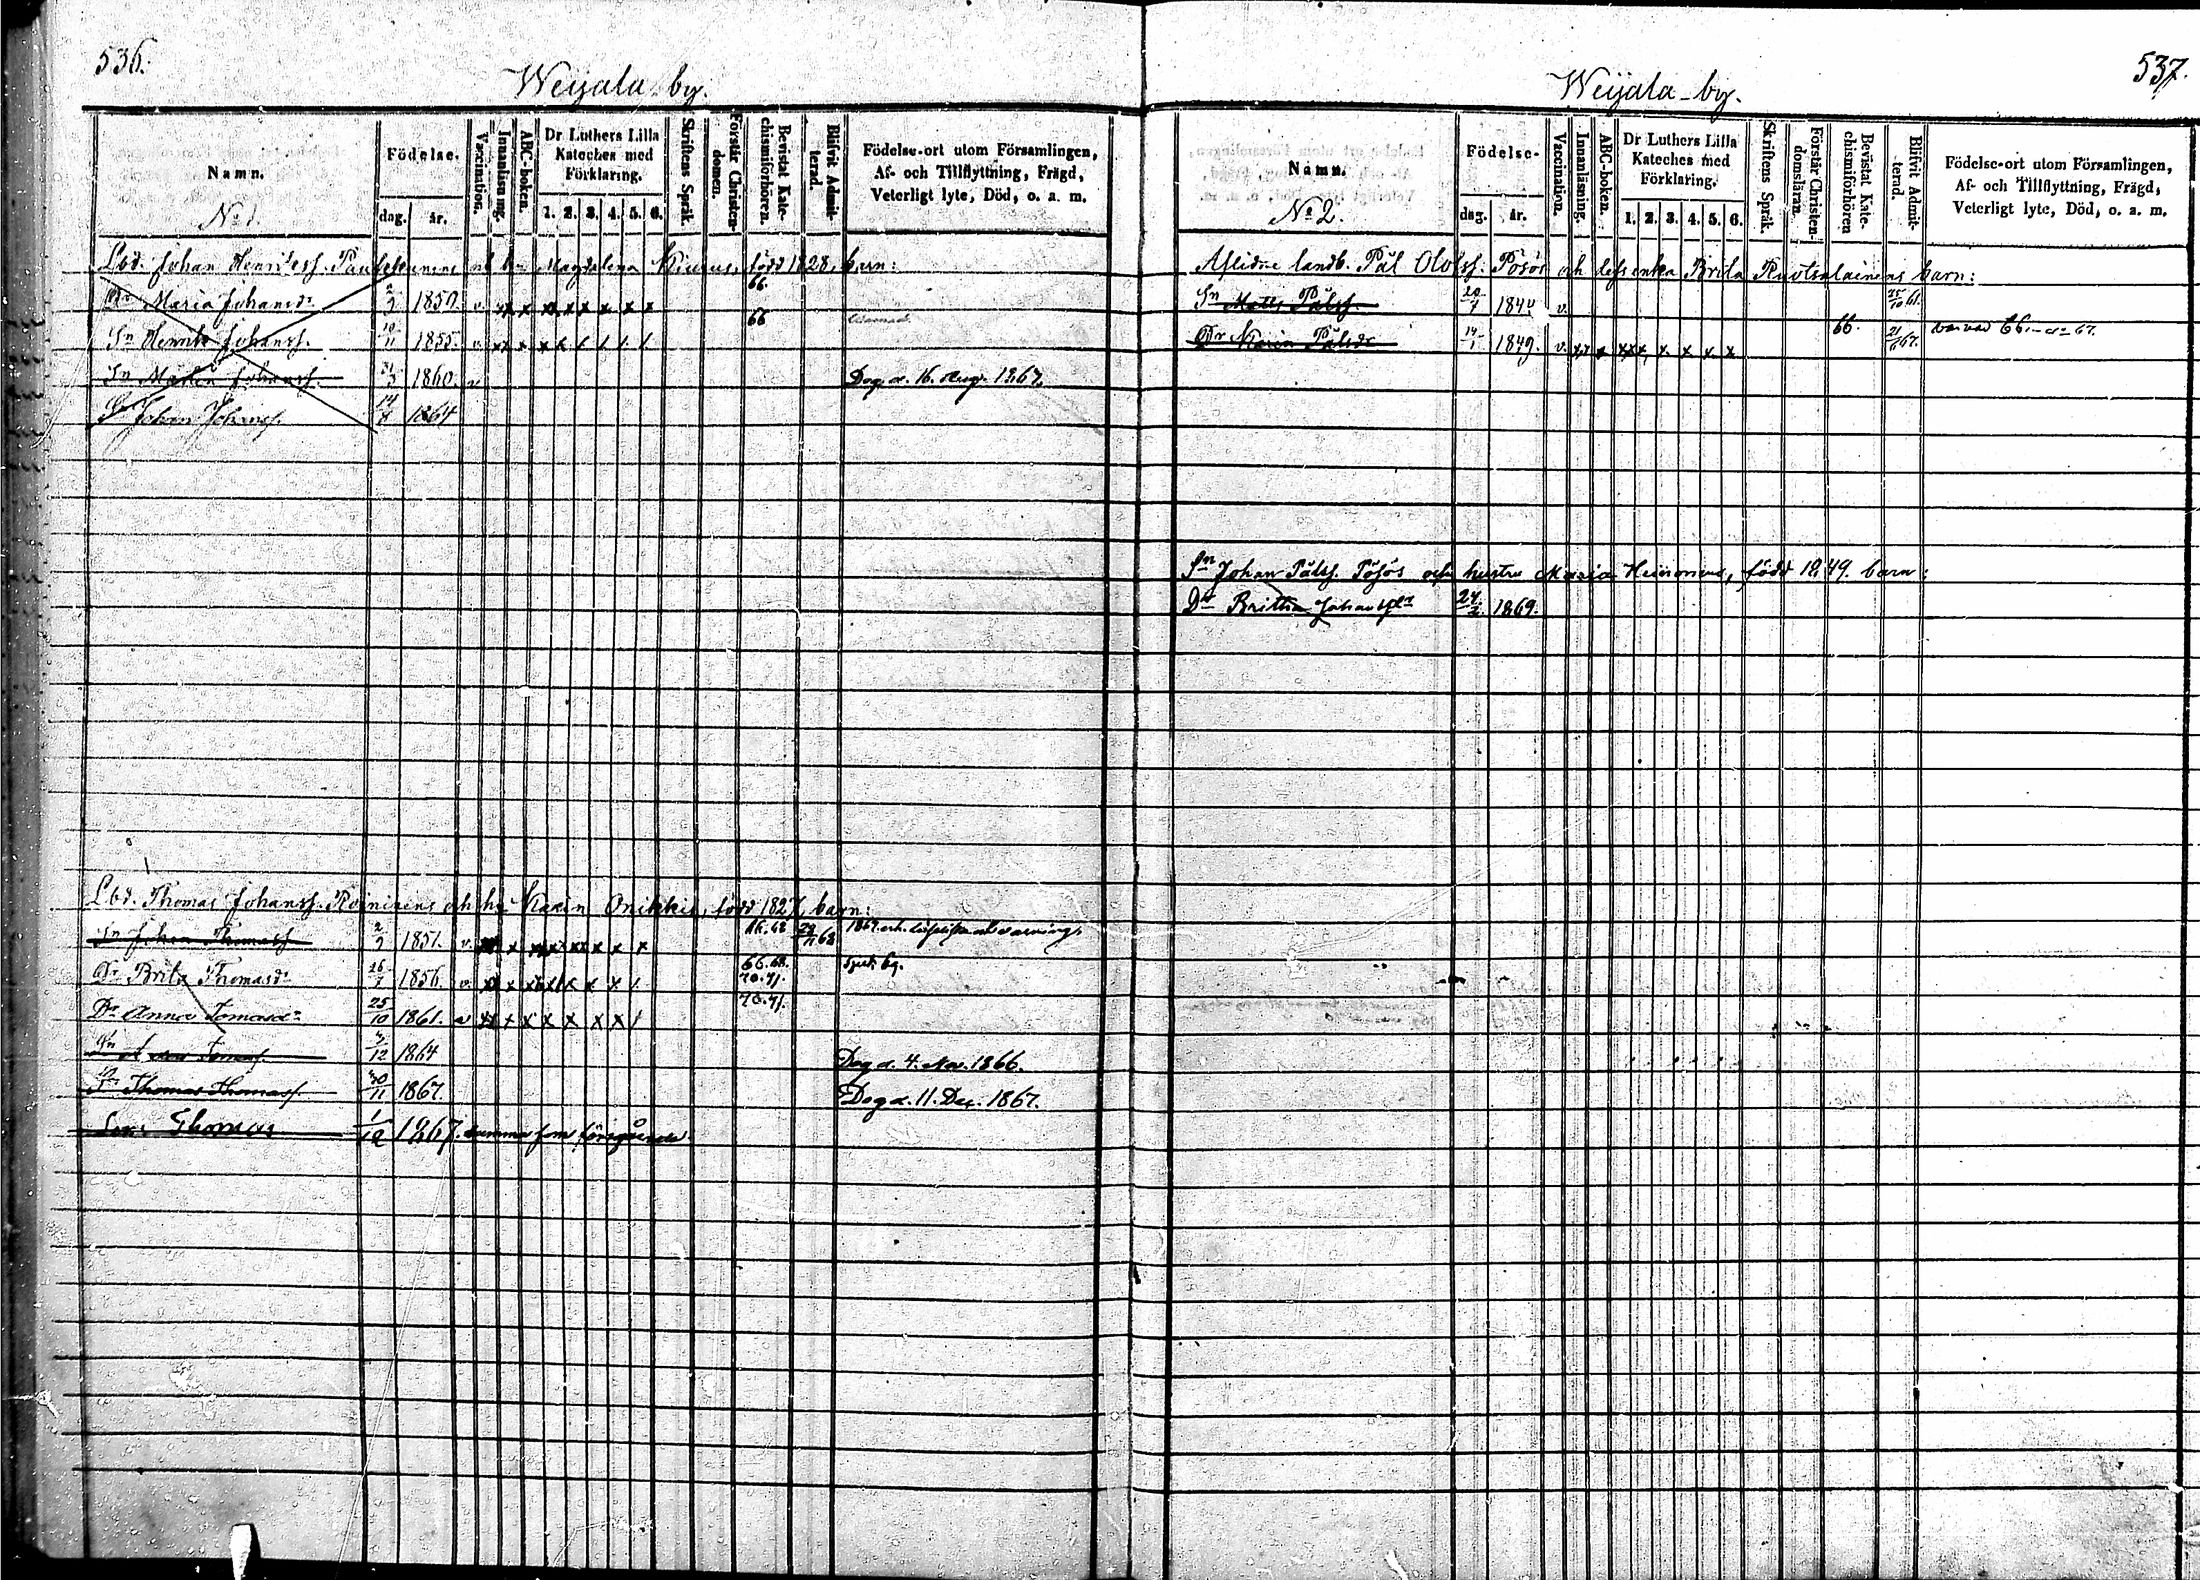 536.
Weijala by.
Namn.
No 1.
Födelse.
dag. år.
Vaccination.
Innanläsning.
ABC-boken.
Dr Luthers Lilla Kateches med Förklaring.
1. 2. 3. 4. 5. 6.
Skriftens Språk.
Förstår Christendomen.
Bevistat Katechismiförhören.
Blifvit Admitterad.
Födelse-ort utom Församlingen, Af- och Tillflyttning, Frägd, Veterligt lyte, Död, o. a. m.
Lbd. Johan Henrikss. Magdalena född 1828, barn:
Dr Maria Johansdr 1850. v. x x x x x x x 66.
Sn Henrik Johanss. 10/11 1855. v. 66
Sn Johanss. 1860. v Dog d. 16. Aug. 1867.
Sn Johan Johanss. 14/8 1864
Lbd. Thomas Johanss. och hu Karin född 1827, barn:
Sn Johan Thomass 1851. v. 66.68 68 1867 erh.
Dr Brita Thomasdr 1856. v. 66.68. 70.71.
Dr Anna Tomasdr 25/10 1861. v 70.71.
Sn Tomass. 12 1864 Dog d. 4. Nov. 1866.
Sn Thomas Thomass. 30/11 1867. Dog d. 11. Dec. 1867.
Son Thomas 1/12 1867. samma som föregående.
537.
Weijala by.
Namn.
No 2.
Födelse-
dag. år.
Vaccination.
Innanläsning.
ABC-boken.
Dr Luthers Lilla Kateches med Förklaring.
1. 2. 3. 4. 5. 6.
Skriftens Språk.
Förstår Christendomsläran.
Bevistat Katechismiförhören
Blifvit Admitterad.
Födelse-ort utom Församlingen, Af- och Tillflyttning, Frägd, Veterligt lyte, Död, o. a. m.
Aflidne landb. Pål Olofss. Pösös och enka Brita Ruotsalainens barn:
Sn Matts Pålss. v. 61.
Dr Karin Pålsdr 14/1 1849. v. x x x x x 66. 67.
Sn Johan Pålss. Pösös och hustru Maria född 1849. barn:
Dr Britta 1869.